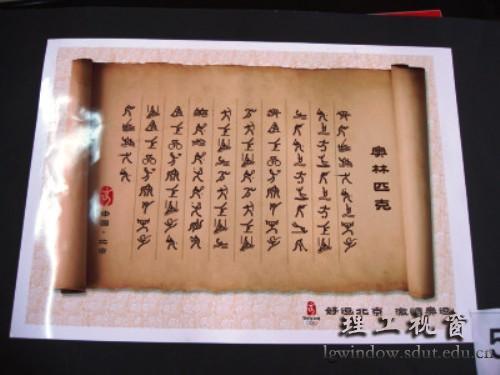 奥林匹克
中国·北京
好运北京 激情奥运
理工视窗
lgwindow.sdut.edu.cn
5